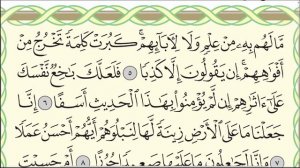 مَّا لَهُم بِهِۦ مِنْ عِلْمٍ وَلَا لِـَٔابَآئِهِمْ ۚ كَبُرَتْ كَلِمَةً تَخْرُجُ مِنْ
أَفْوَٰهِهِمْ ۚ إِن يَقُولُونَ إِلَّا كَذِبًا ٥ فَلَعَلَّكَ بَٰخِعٌ نَّفْسَكَ
عَلَىٰٓ ءَاثَٰرِهِمْ إِن لَّمْ يُؤْمِنُوا۟ بِهَٰذَا ٱلْحَدِيثِ أَسَفًا ٦ إِنَّا
جَعَلْنَا مَا عَلَى ٱلْأَرْضِ زِينَةً لَّهَا لِنَبْلُوَهُمْ أَيُّهُمْ أَحْسَنُ عَمَلًا
٧ وَإِنَّا لَجَٰعِلُونَ مَا عَلَيْهَا صَعِيدًا جُرُزًا ٨ أَمْ حَسِبْتَ